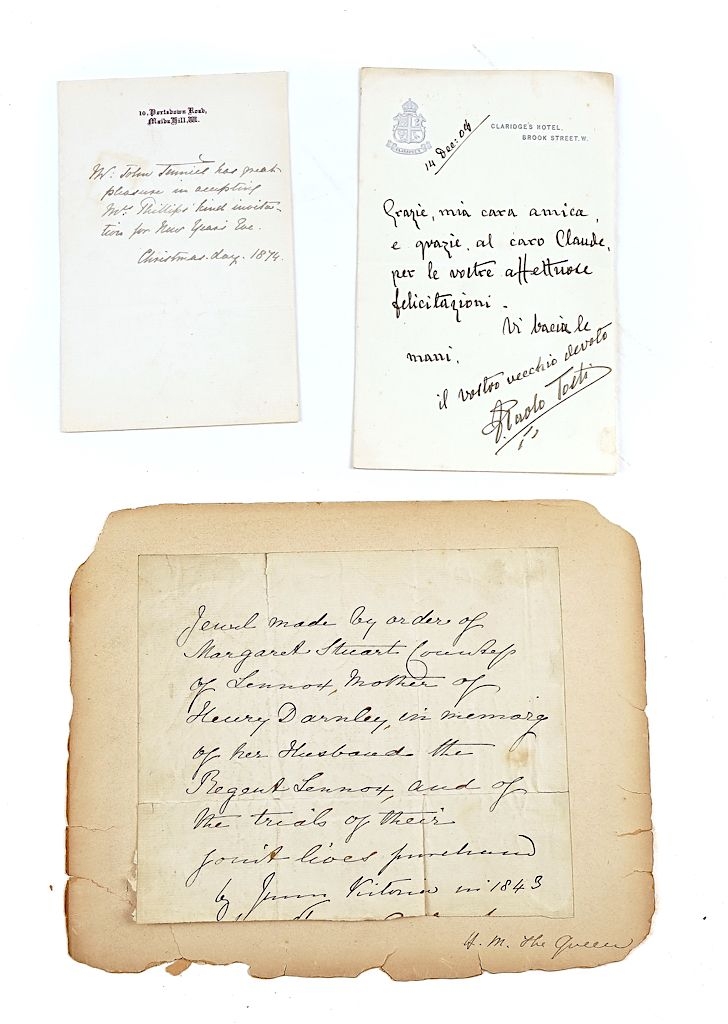 10, Portsdown Road,
Maida Hill, W.
Mr. John Tenniel has great
pleasure in accepting
Mrs. Phillips' kind invita-
tion for New Year's Eve.
Christmas-day. 1874.
CLARIDGE'S
CLARIDGE'S HOTEL,
BROOK STREET. W.
14 Dec: 08
Grazie, mia cara amica,
e grazie, al caro Claude,
per le vostre affettuose
felicitazioni.
Vi bacia le
mani.
il vostro vecchio devoto
P. Paolo Tosti
Jewel made by order of
Margaret Stuart Countess
of Lennox, Mother of
Henry Darnley, in memory
of her Husband the
Regent Lennox, and of
the trials of their
joint lives purchased
by Queen Victoria in 1843
H. M. The Queen